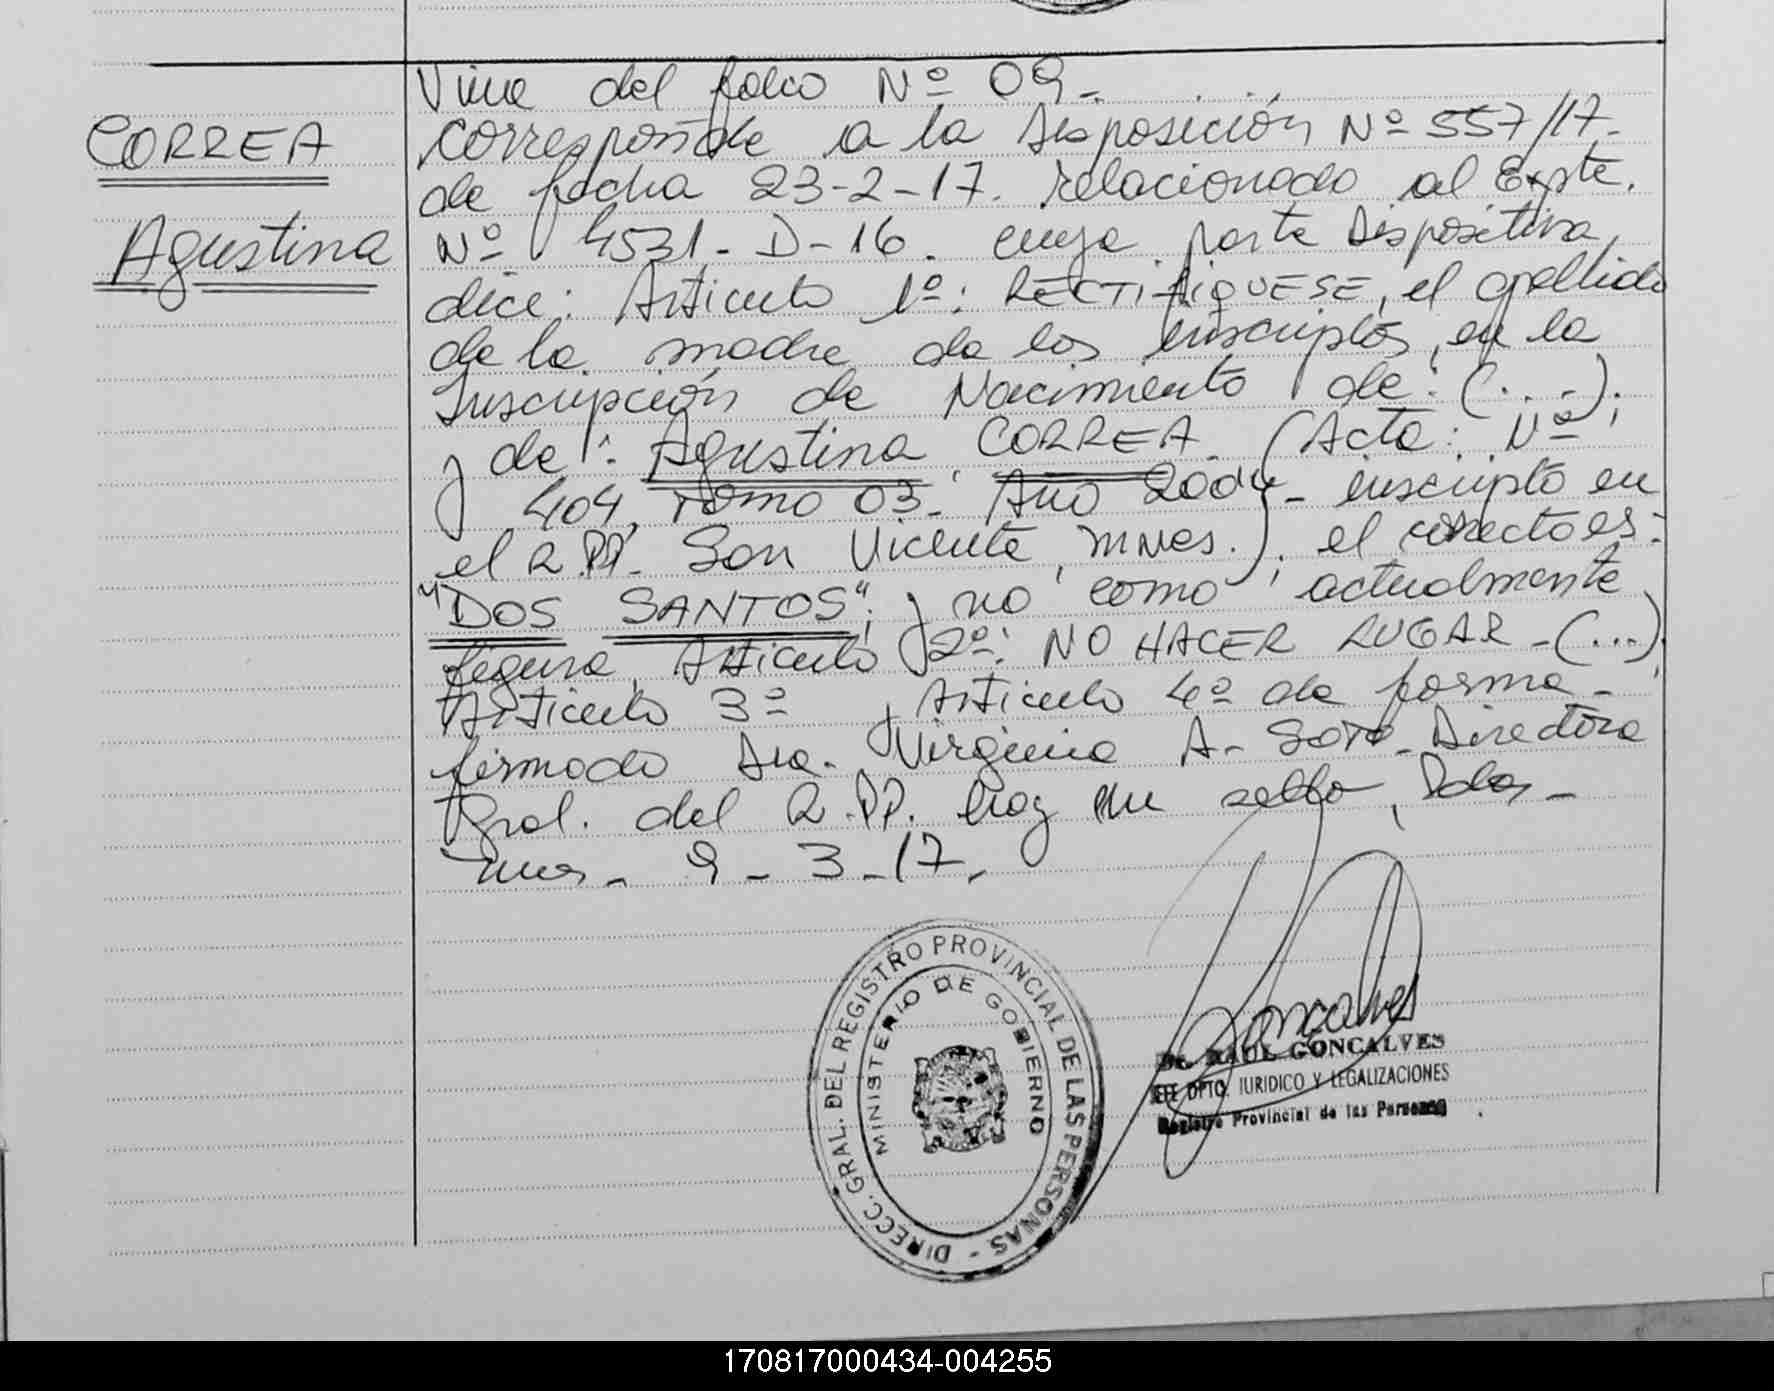 Viene del folio Nº 09-
CORREA
Corresponde a la Disposición Nº 557/17-
de fecha 23-2-17. relacionado al Expte.
Agustina
Nº 4531-D-16. cuya parte Dispositiva
dice: Articulo 1º: RECTIFIQUESE, el apellido
de la madre de los inscriptos, en la
Inscripción de Nacimiento de: (...);
y de: Agustina CORREA. (Acta: Nº
404, Tomo 03- Año 2004- inscripto en
el R.PP. San Vicente, Mnes.); el correcto es:
"DOS SANTOS"; y no como actualmente
figura, Articulo 2º: NO HACER LUGAR-(...);
Articulo 3º y Articulo 4º de forma-
firmado Dra. Virginia A- SOTO- Directora
Gral. del R.PP. hay un sello, Pdas-
Mnes- 9-3-17-
Goncalves
Dr. RAUL GONCALVES
JEFE DPTO. JURIDICO Y LEGALIZACIONES
Registro Provincial de las Personas
DIRECC. GRAL. DEL REGISTRO PROVINCIAL DE LAS PERSONAS -
MINISTERIO DE GOBIERNO
170817000434-004255